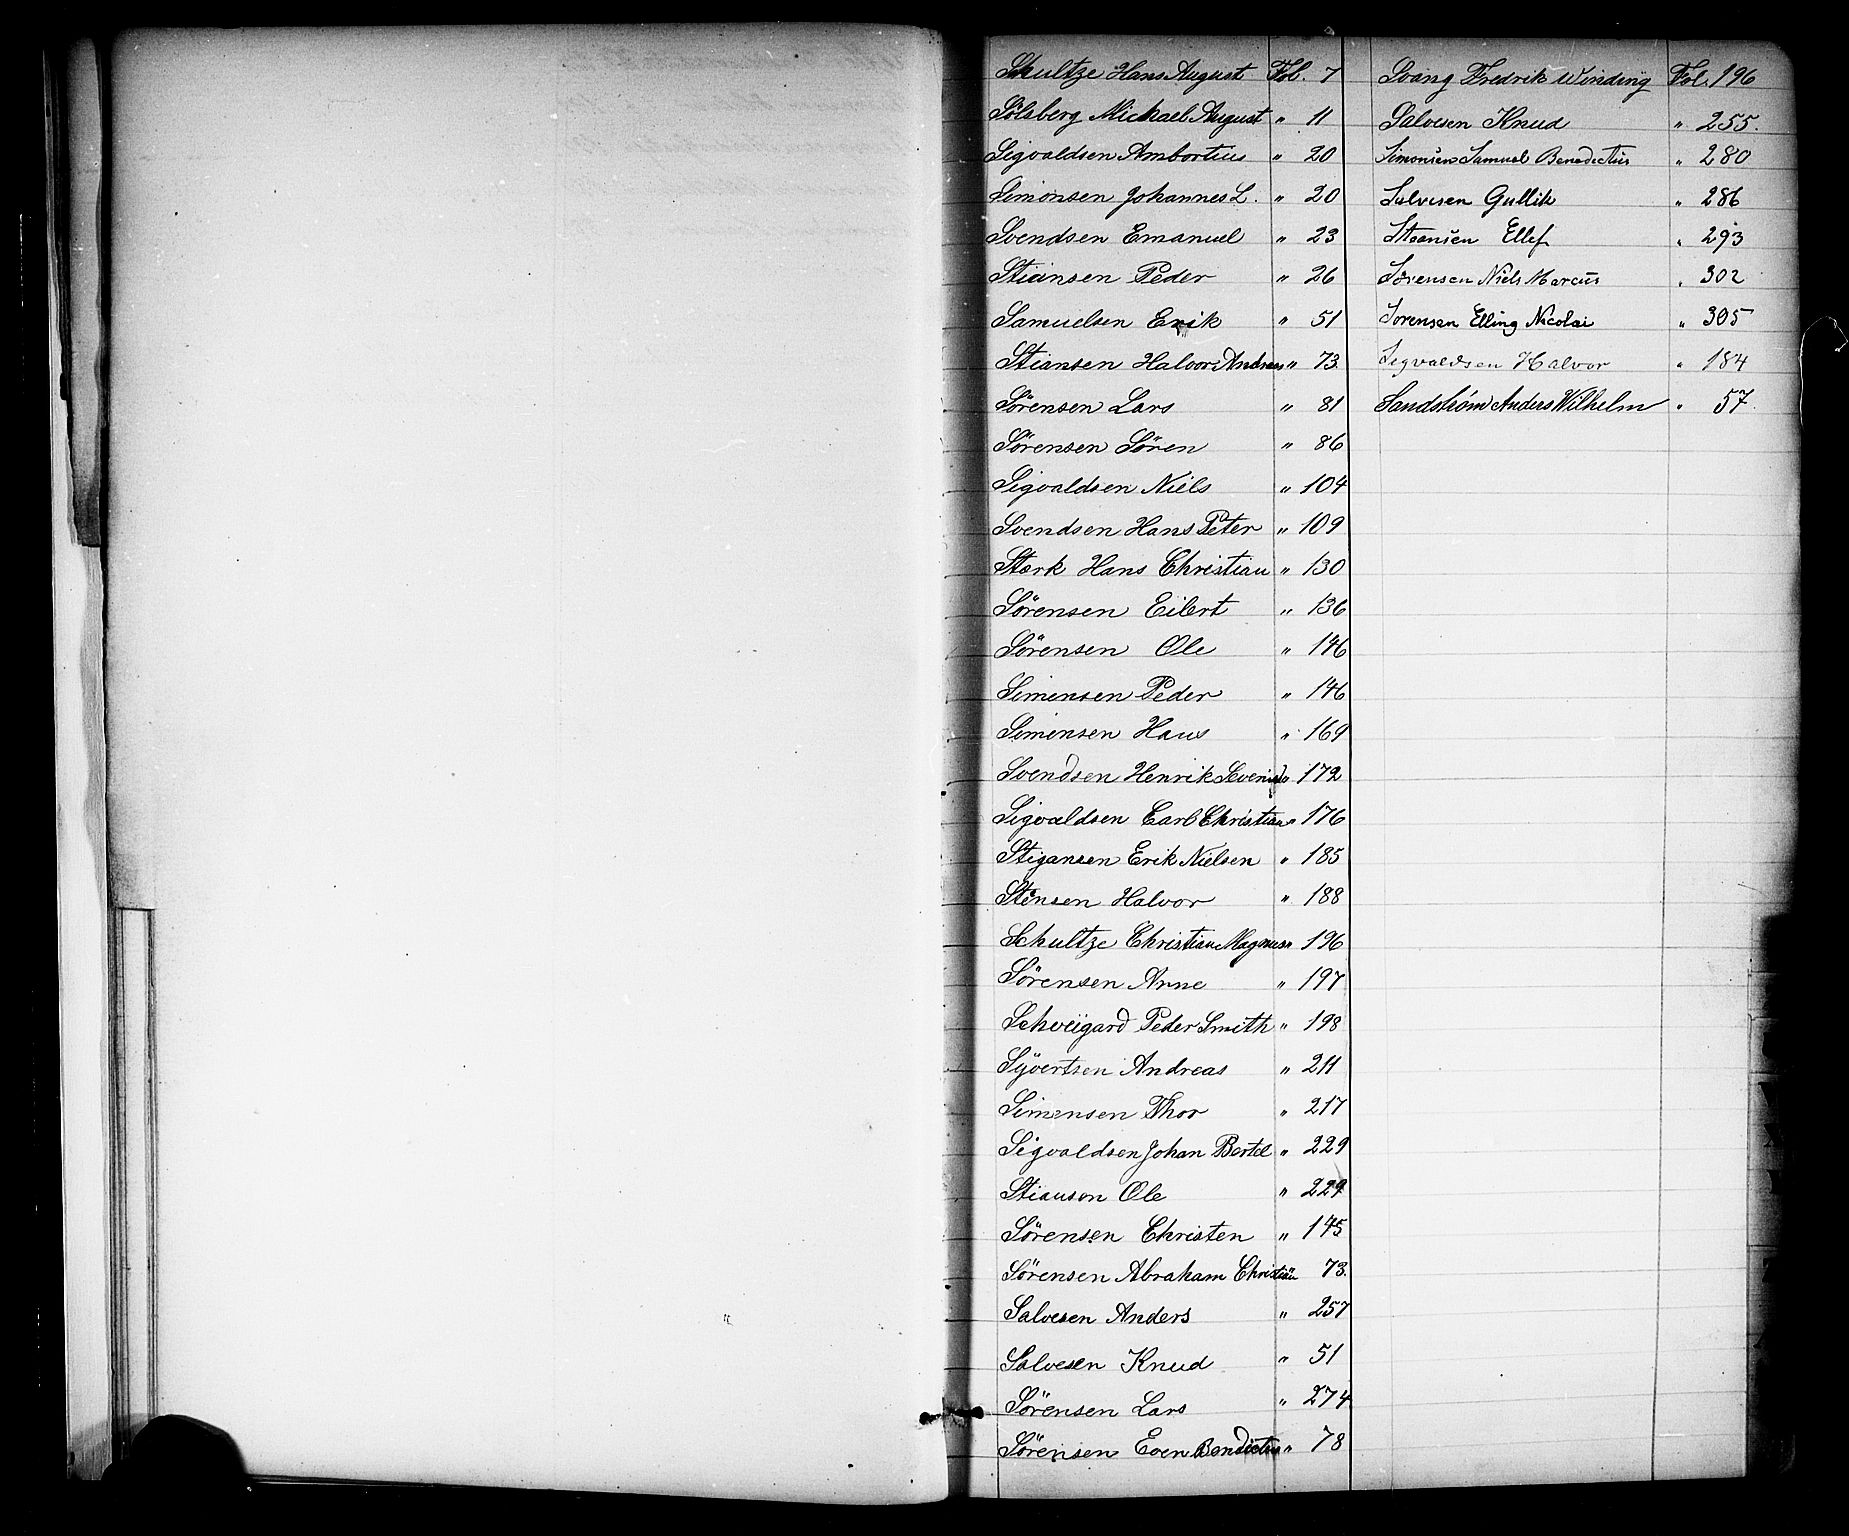 Schultze Hans August Fol. 7
Sölsberg Michael August " 11
Sigvaldsen Ambortius " 20
Simonsen Johannes L. " 20
Svendsen Emanuel " 23
Stiansen Peder " 26
Samuelsen Erik " 51
Stiansen Halvor Andreas " 73.
Sørensen Lars " 81
Sørensen Søren " 86
Sigvaldsen Niels " 104
Svendsen Hans Peter " 109
Stærk Hans Christian " 130
Sørensen Eilert " 136
Sørensen Ole " 146
Simensen Peder " 146
Simensen Hans " 169
Svendsen Henrik Severin " 172
Sigvaldsen Carl Christian " 176
Stigansen Erik Nielsen " 185
Stensen Halvor " 188
Schultze Christian Magnus " 196
Sørensen Arne " 197
Schveigard Peder Smith " 198
Syvertsen Andreas " 211
Simensen Thor " 217
Sigvaldsen Johan Bertel " 229
Stianson Ole " 229
Sørensen Christen " 145
Sørensen Abraham Christian 73.
Salvesen Anders " 257
Salvesen Knud " 51
Sørensen Lars " 274
Sørensen Even Bendictus " 78
Svang Fredrik Winding Fol. 196
Salvesen Knud " 255.
Simonsen Samuel Benedictus " 280
Salvesen Gullik " 286
Steensen Ellef " 293
Sørensen Niels Marcus " 302
Sorensen Elling Nicolai " 305
Sigvaldsen Halvor " 184
Sandstrøm Anders Wilhelm " 57.